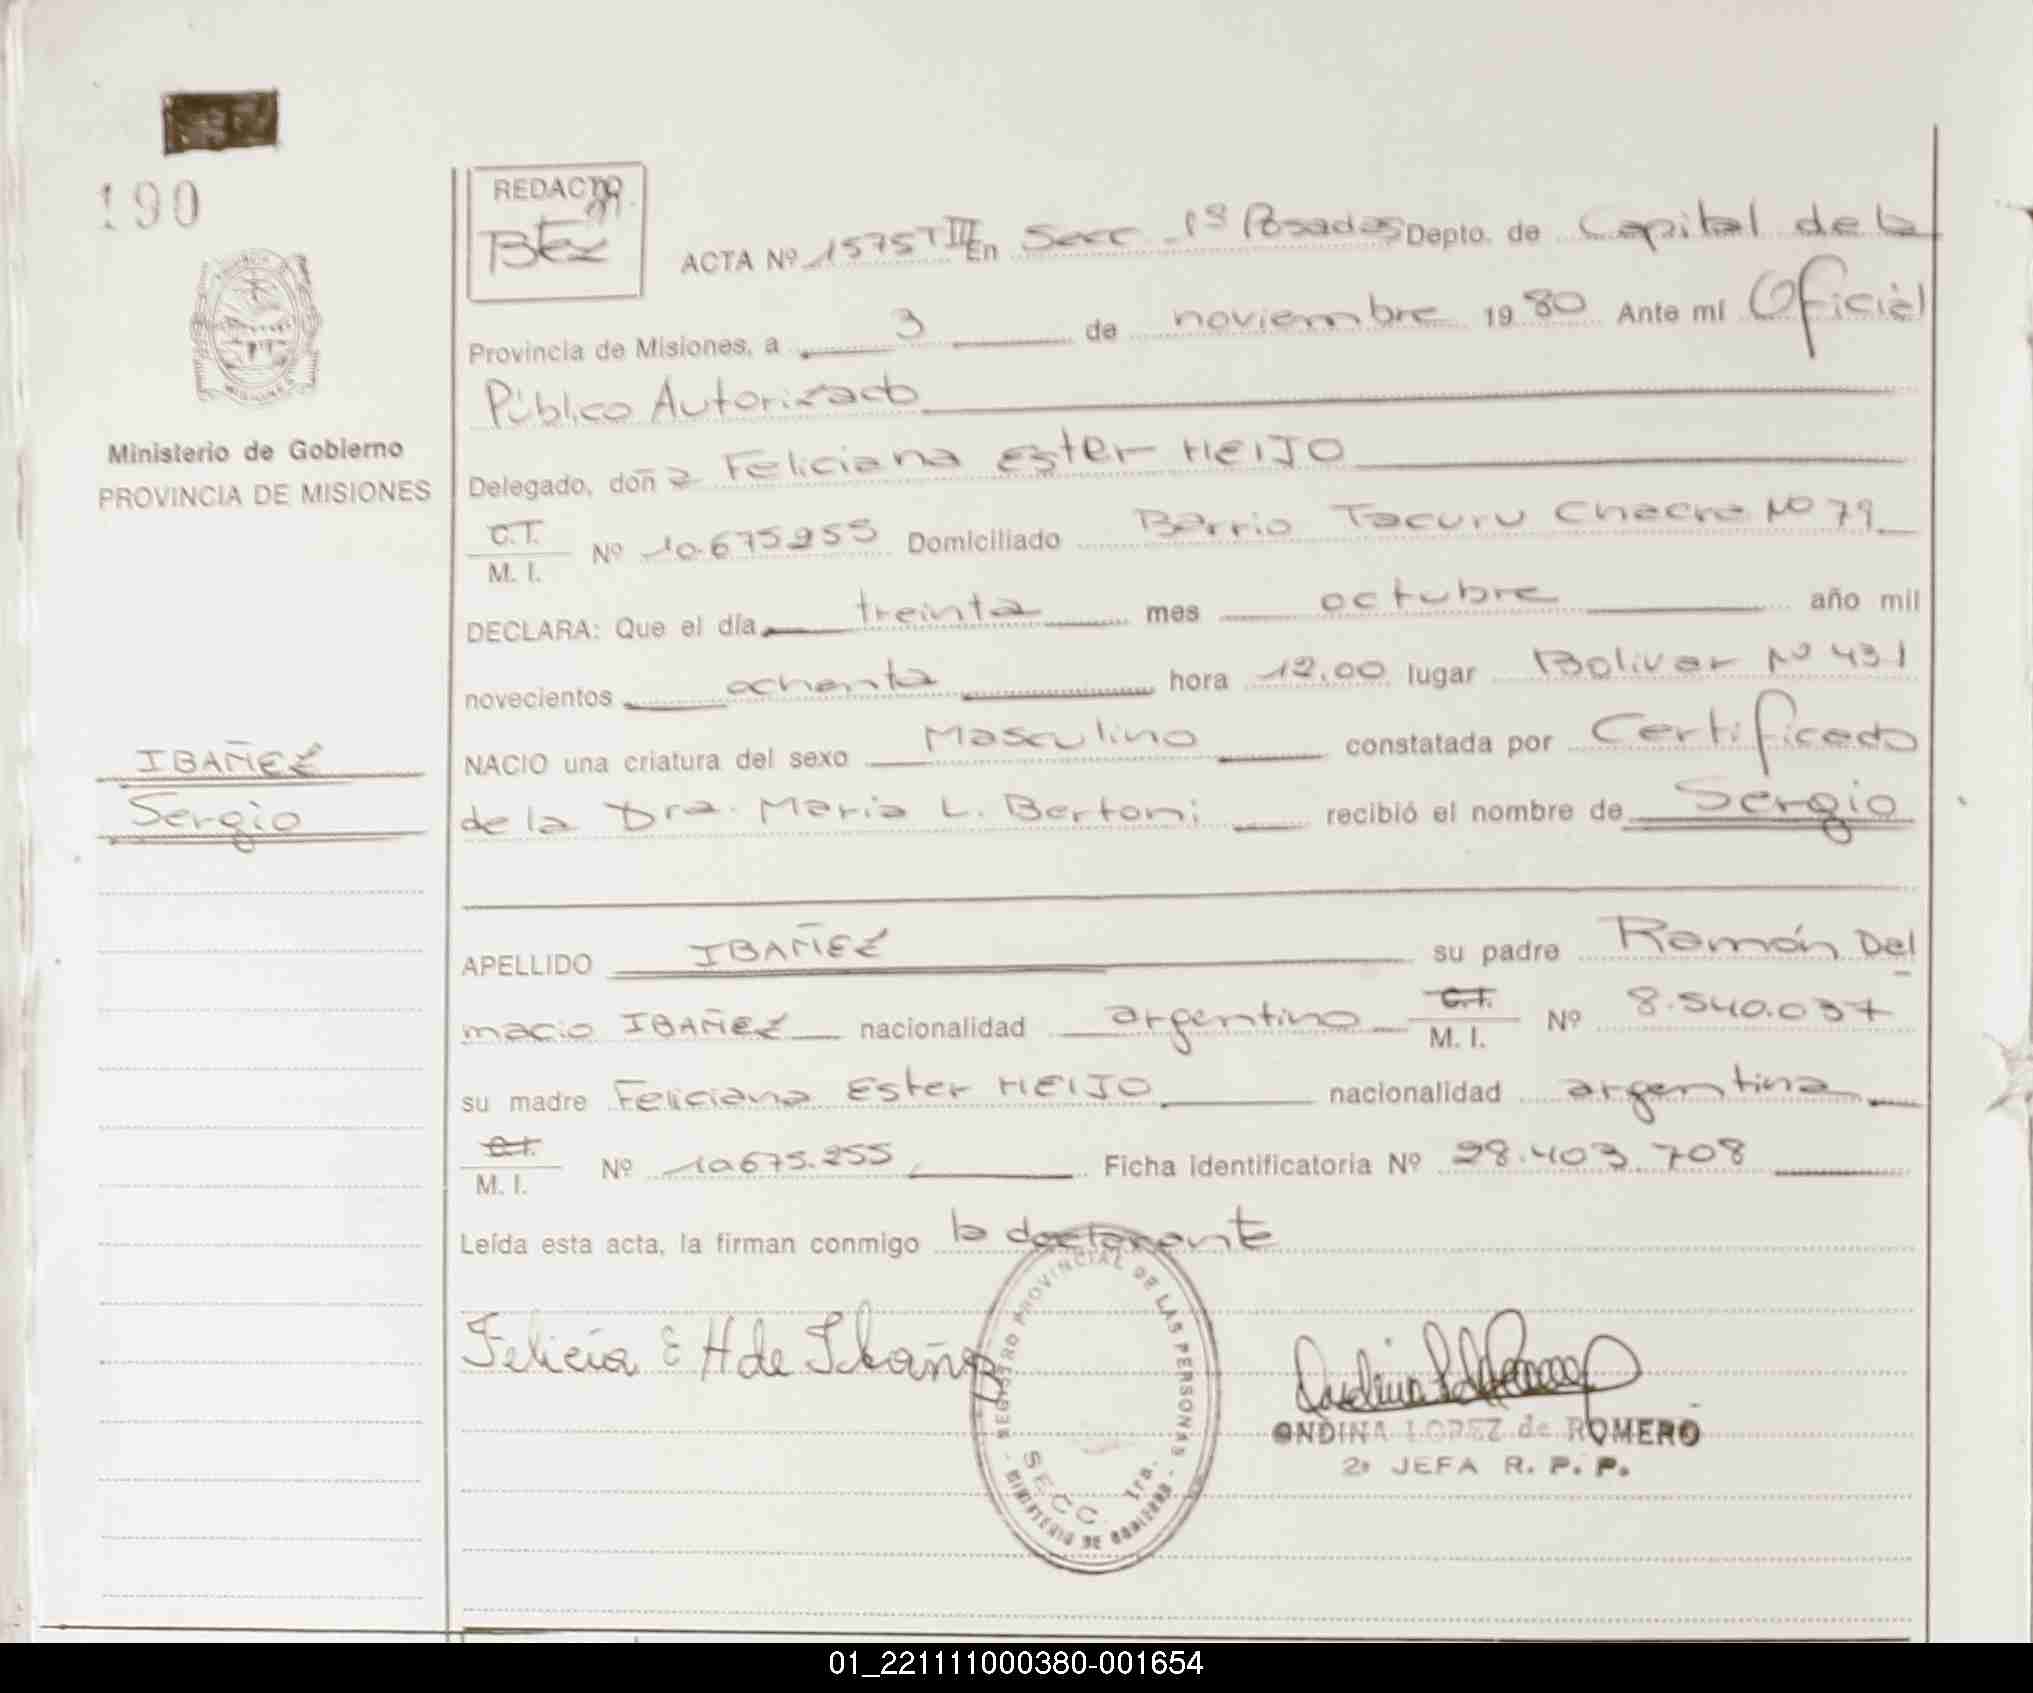 190
REDACTO
ACTA Nº 1575 T III En Secc 1ª Posadas Depto. de Capital de la
Provincia de Misiones, a 3 de noviembre 1980 Ante mí Oficial
Público Autorizado
Ministerio de Gobierno
PROVINCIA DE MISIONES
Delegado, doña Feliciana Ester HEIJO
C.I.
M. I. Nº 10.675255 Domiciliado Barrio Tacuru Chacra Nº 79
DECLARA: Que el día treinta mes octubre año mil
novecientos ochenta hora 12.00 lugar Bolivar Nº 431
NACIO una criatura del sexo Masculino constatada por Certificado
IBAÑEZ
Sergio
de la Dra. Maria L. Bertoni recibió el nombre de Sergio
APELLIDO IBAÑEZ su padre Ramón Del
macio IBAÑEZ nacionalidad argentino C.I.
M. I. Nº 8.540.037
su madre Feliciana Ester HEIJO nacionalidad argentina
C.I.
M. I. Nº 10675.255 Ficha Identificatoria Nº 28.403.708
Leída esta acta, la firman conmigo la declarante
Felicia E H de Ibañez
REGISTRO PROVINCIAL DE LAS PERSONAS
SECC. 1ra.
MINISTERIO DE GOBIERNO
ONDINA LOPEZ de ROMERO
2ª JEFA R. P. P.
01_221111000380-001654